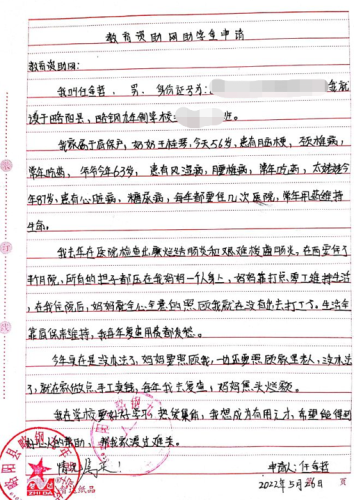 教育资助网助学金申请
教育资助网:
我叫任 男、身份证号为: 就
读于略阳县、略钢 制学校 班。
我家属于低保户,奶奶王桂琴,今天56岁,患有 颈椎病,
常年吃药, 爷爷今年63岁,患有风湿病,腰椎病,常吃药,太婆婆今
年87岁,患有心脏病、糖尿病,每年都要住几次医院,常年用药维持
生命。
我去年在医院检查出 结肠炎和 肠炎。在西安住了
个月院,所有的担子都压在我妈妈一个人身上,妈妈靠打 零工维持生活
,在我住院后,妈妈就全心全意的照顾我就在没有出去打工了。生活全
靠低保来维持,我每年复查用费都发愁。
今年实在是没办法了,妈妈要照顾我,一边还要照顾家里老人,没办法
了,就在家做点手工卖钱,每年我去复查,妈妈焦头烂额。
我在学校要好好学习,把 我想成为有用之才,希望能得到
好心人的帮助,帮我家渡过难关。
情况属实!
申请人:任
2022年5月26日